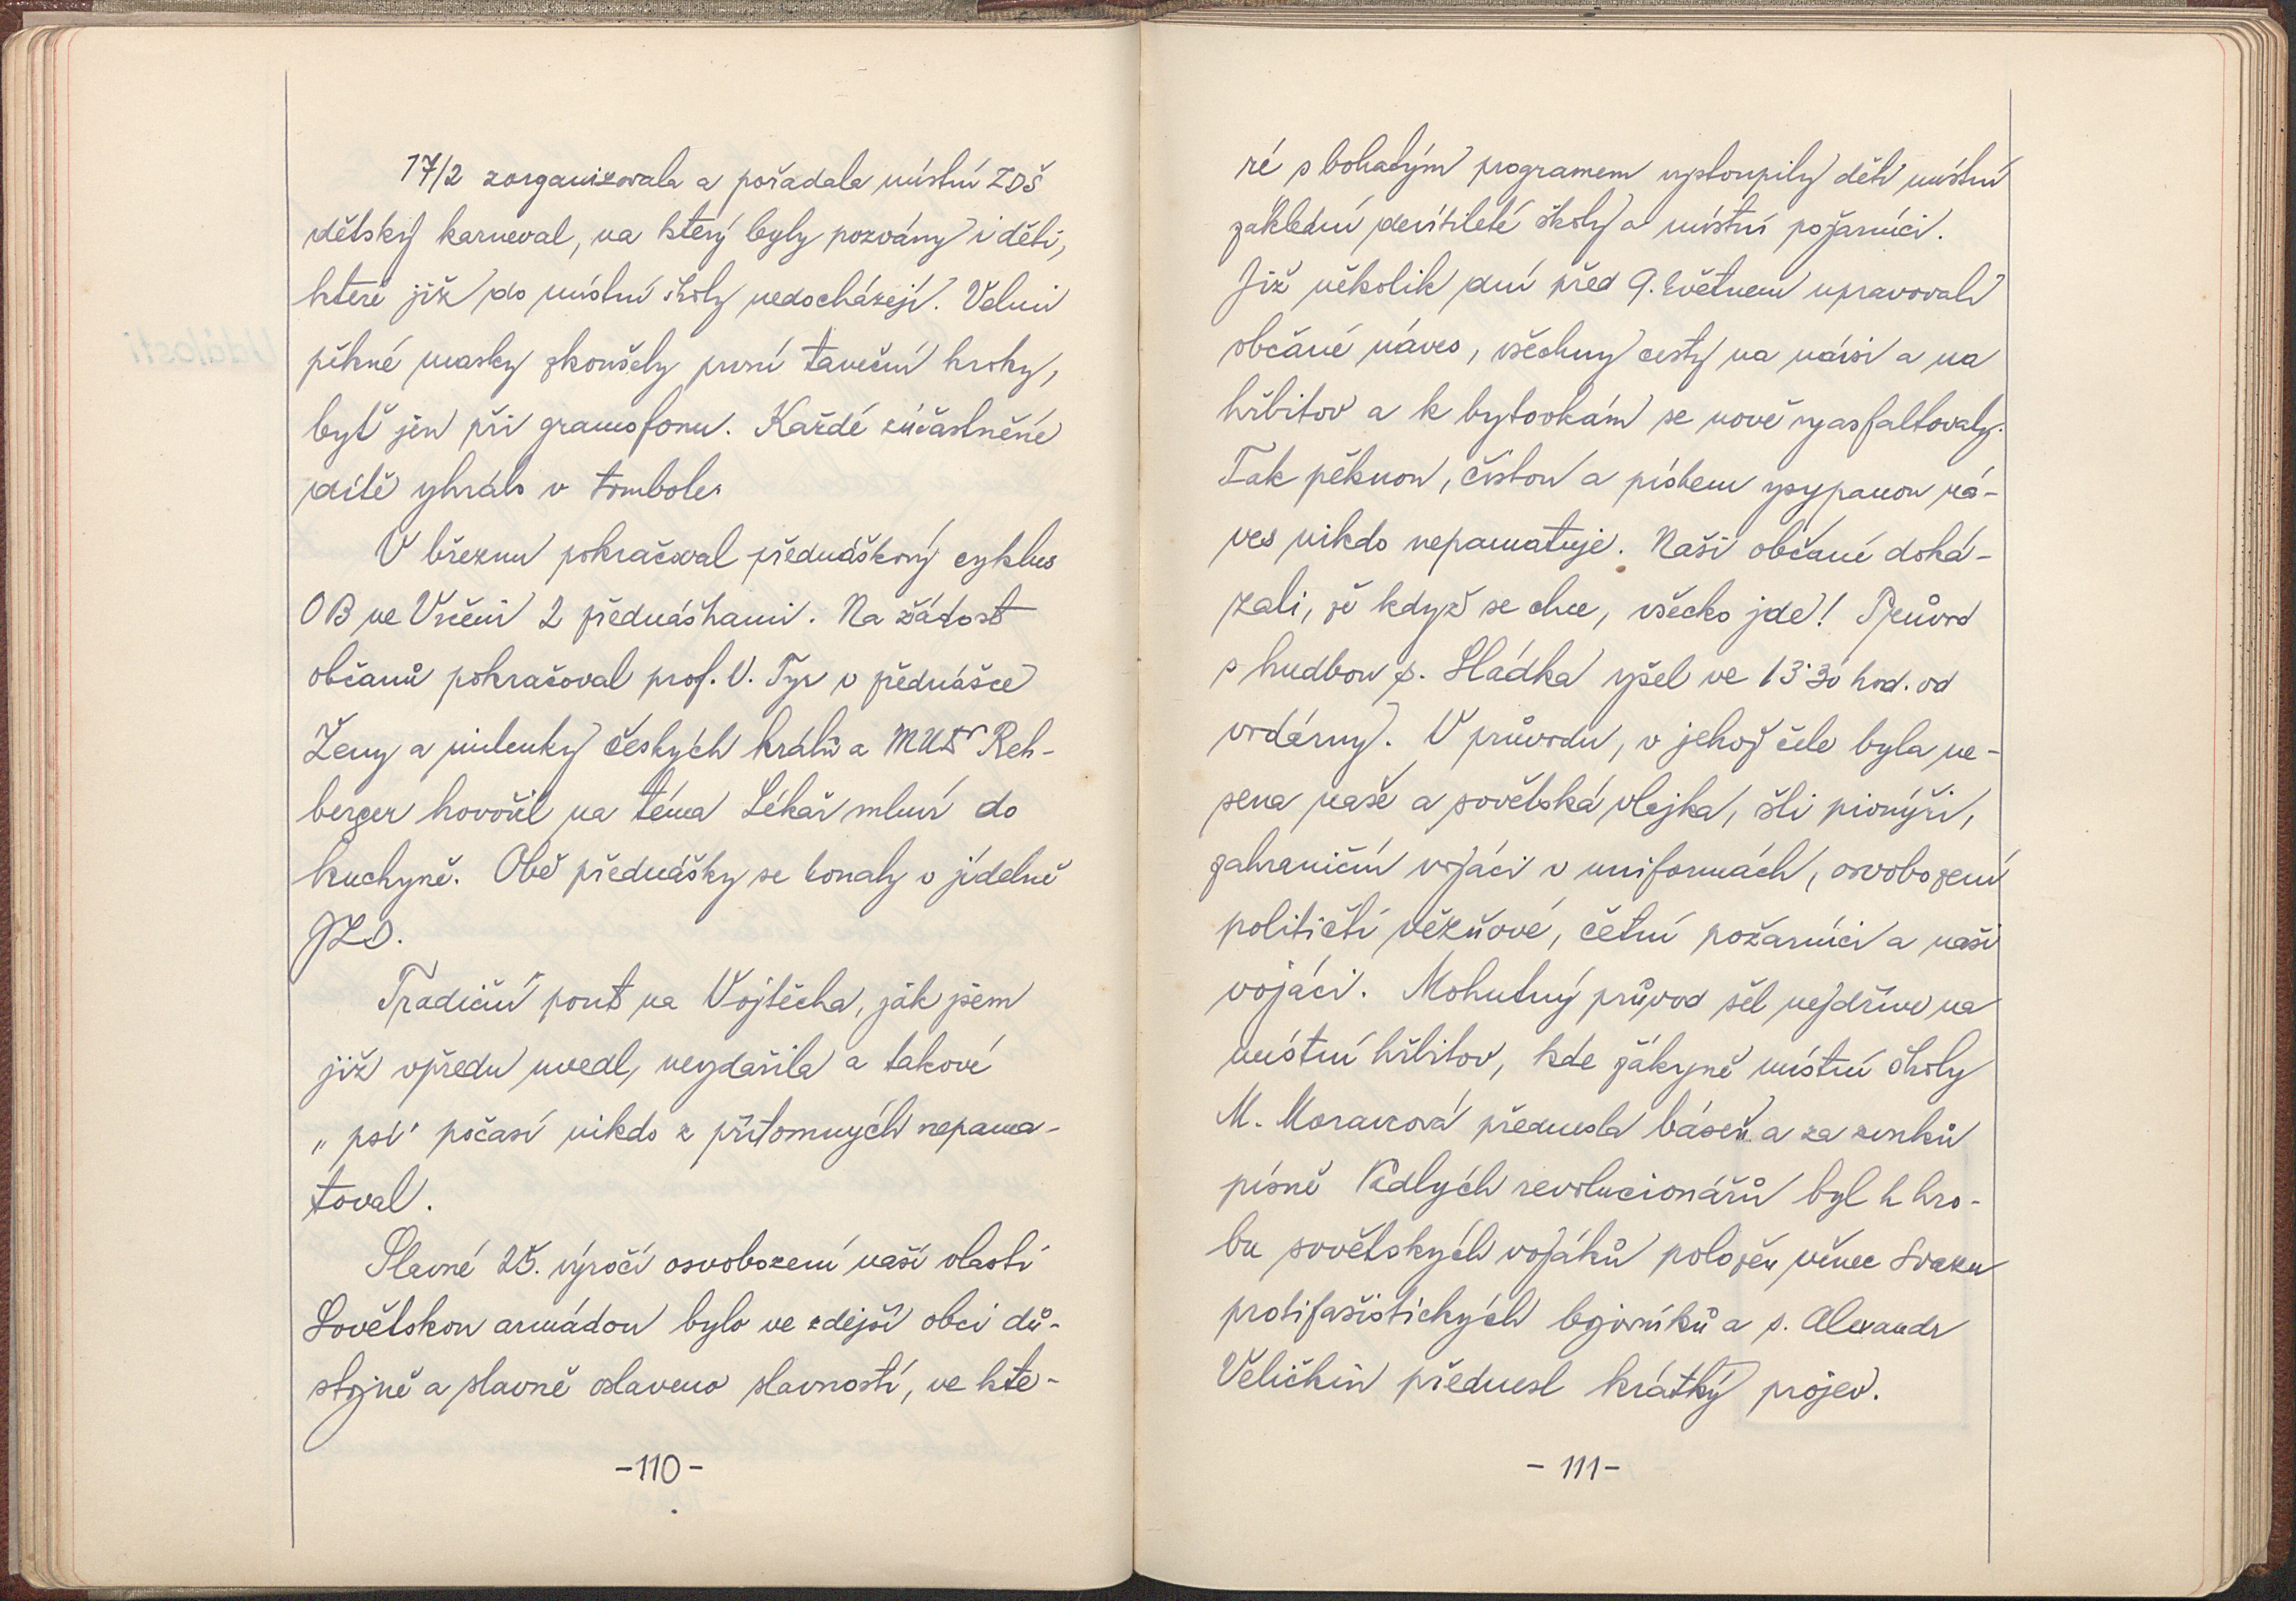 17/2 zorganizovala a pořádala místní ZDŠ
dětský karneval, na který byly pozvány i děti,
které již do místní školy nedocházejí. Velmi
pěkné masky zkoušely první taneční kroky,
byť jen při gramofonu. Každé zúčastněné
dítě vyhrálo v tombole.
V březnu pokračoval přednáškový cyklus
OB ve Vrčeni 2 přednáškami. Na žádost
občanů pokračoval prof. V. Tyr v přednášce
Ženy a milenky českých králů a MUDr Reh-
berger hovořil na téma Lékař mluví do
kuchyně. Obě přednášky se konaly v jídelně
JZD.
Tradiční pouť na Vojtěcha, jak jsem
již vpředu uvedl, nevydařila a takové
„psí" počasí nikdo z přítomných nepama-
toval.
Slavné 25. výročí osvobození naší vlasti
Sovětskou armádou bylo ve zdejší obci dů-
stojně a slavně oslaveno slavností, ve kte-
-110-
ré s bohatým programem vystoupily děti místní
základní devítileté školy a místní požárníci.
Již několik dní před 9. květnem upravovali
občané náves, všechny cesty na návsi a na
hřbitov a k bytovkám se nově vyasfaltovaly.
Tak pěknou, čistou a pískem vysypanou ná-
ves nikdo nepamatuje. Naši občané doká-
zali, že když se chce, všecko jde! Průvod
s hudbou p. Sládka vyšel ve 13.30 hod. od
vodárny. V průvodu, v jehož čele byla ne-
sena naše a sovětská vlajka, šli pionýři,
zahraniční vojáci v uniformách, osvobození
političtí vězňové, četní požárníci a naši
vojáci. Mohutný průvod šel nejdříve na
místní hřbitov, kde žákyně místní školy
M. Moravcová přednesla báseň a za zvuků
písně Padlých revolucionářů byl k hro-
bu sovětských vojáků položen věnec Svazu
protifašistických bojovníků a s. Alexandr
Veličkin přednesl krátký projev.
-111-